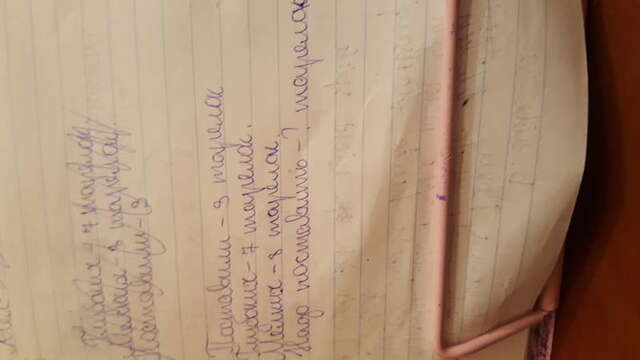 Глубоких - 7 тарелок.
Мелких - 8 тарелок.
Поставили - 9
Поставили - 9 тарелок
Глубоких - 7 тарелок.
Мелких - 8 тарелок.
Надо поставить - ? тарелок